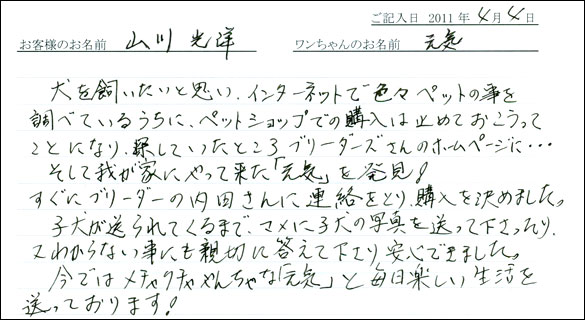 ご記入日 2011年4月4日
お客様のお名前 山川 光洋 ワンちゃんのお名前 元気
犬を飼いたいと思い、インターネットで色々ペットの事を
調べているうちに、ペットショップでの購入は止めておこうって
ことになり、探していたところブリーダーズさんのホームページに・・・
そして我が家にやって来た「元気」を発見!
すぐにブリーダーの内田さんに連絡をとり、購入を決めました。
子犬が送られてくるまで、マメに子犬の写真を送って下さったり、
又わからない事にも親切に答えて下さり安心できました。
今ではメチャクチャやんちゃな「元気」と毎日楽しい生活を
送っております!